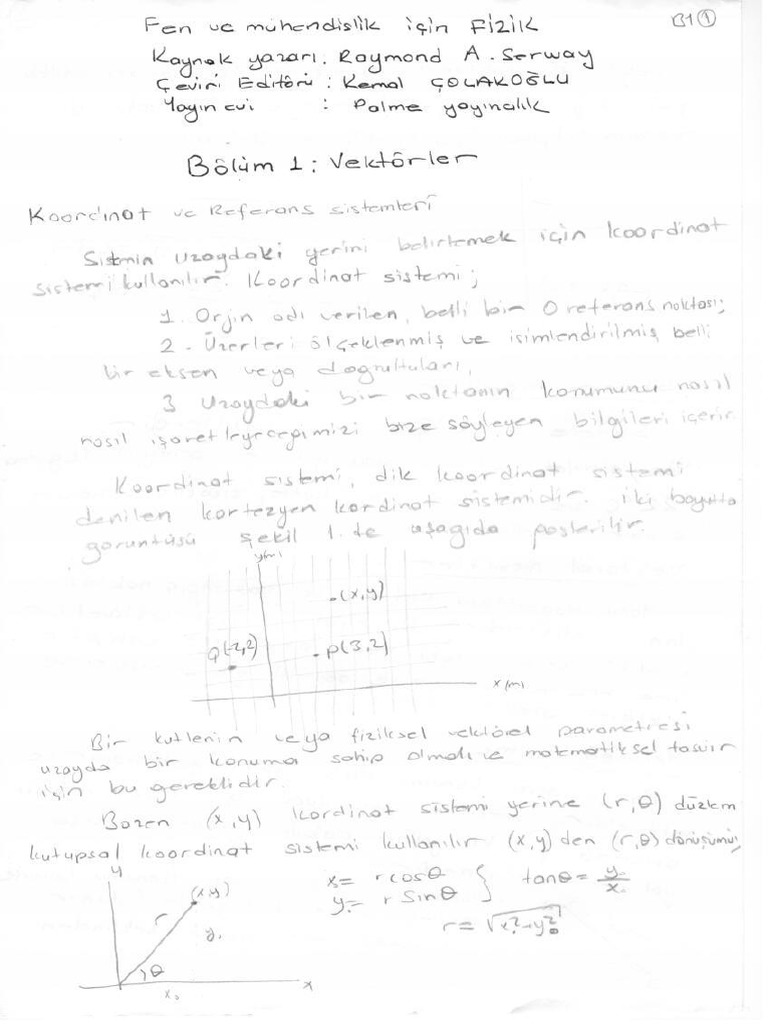 Fen ve mühendislik için Fizik
B1 ①
Kaynak yazarı: Raymond A. Serway
Çeviri Editörü : Kemal ÇOLAKOĞLU
Yayın evi : Palme yayıncılık
Bölüm 1: Vektörler
Koordinat ve Referans sistemleri
uzaydaki yerini belirtemek için koordinat
sistemi kullanılır. Koordinat sistemi;
1. Orjin adı verilen, belli bir O referans noktası;
2 - Üzerleri ölçeklenmiş ve isimlendirilmiş belli
bir eksen veya doğrultuları,
3 Uzaydaki bir noktanın konumunu nasıl
nasıl bize söyleyen bilgileri içerir.
Koordinat sistemi, dik koordinat sistemi
denilen kartezyen kordinat sistemidir. iki boyutta
görüntüsü şekil 1. de aşağıda gösterilir.
y(m)
(x,y)
Q(-2,2)
P(3,2)
x(m)
Bir kutlenin veya fiziksel vektörel parametresi
uzayda bir konuma sahip olmalı ve matematiksel tasvir
için bu gereklidir.
Bazen (x,y) kordinat sistemi yerine (r,θ) düzlem
kutupsal koordinat sistemi kullanılır (x,y) den (r,θ) dönüşümü;
y
(x,y)
x= r cosθ
y= r Sinθ
tanθ = y/x
r= √x²+y²
r
y
θ
x
x